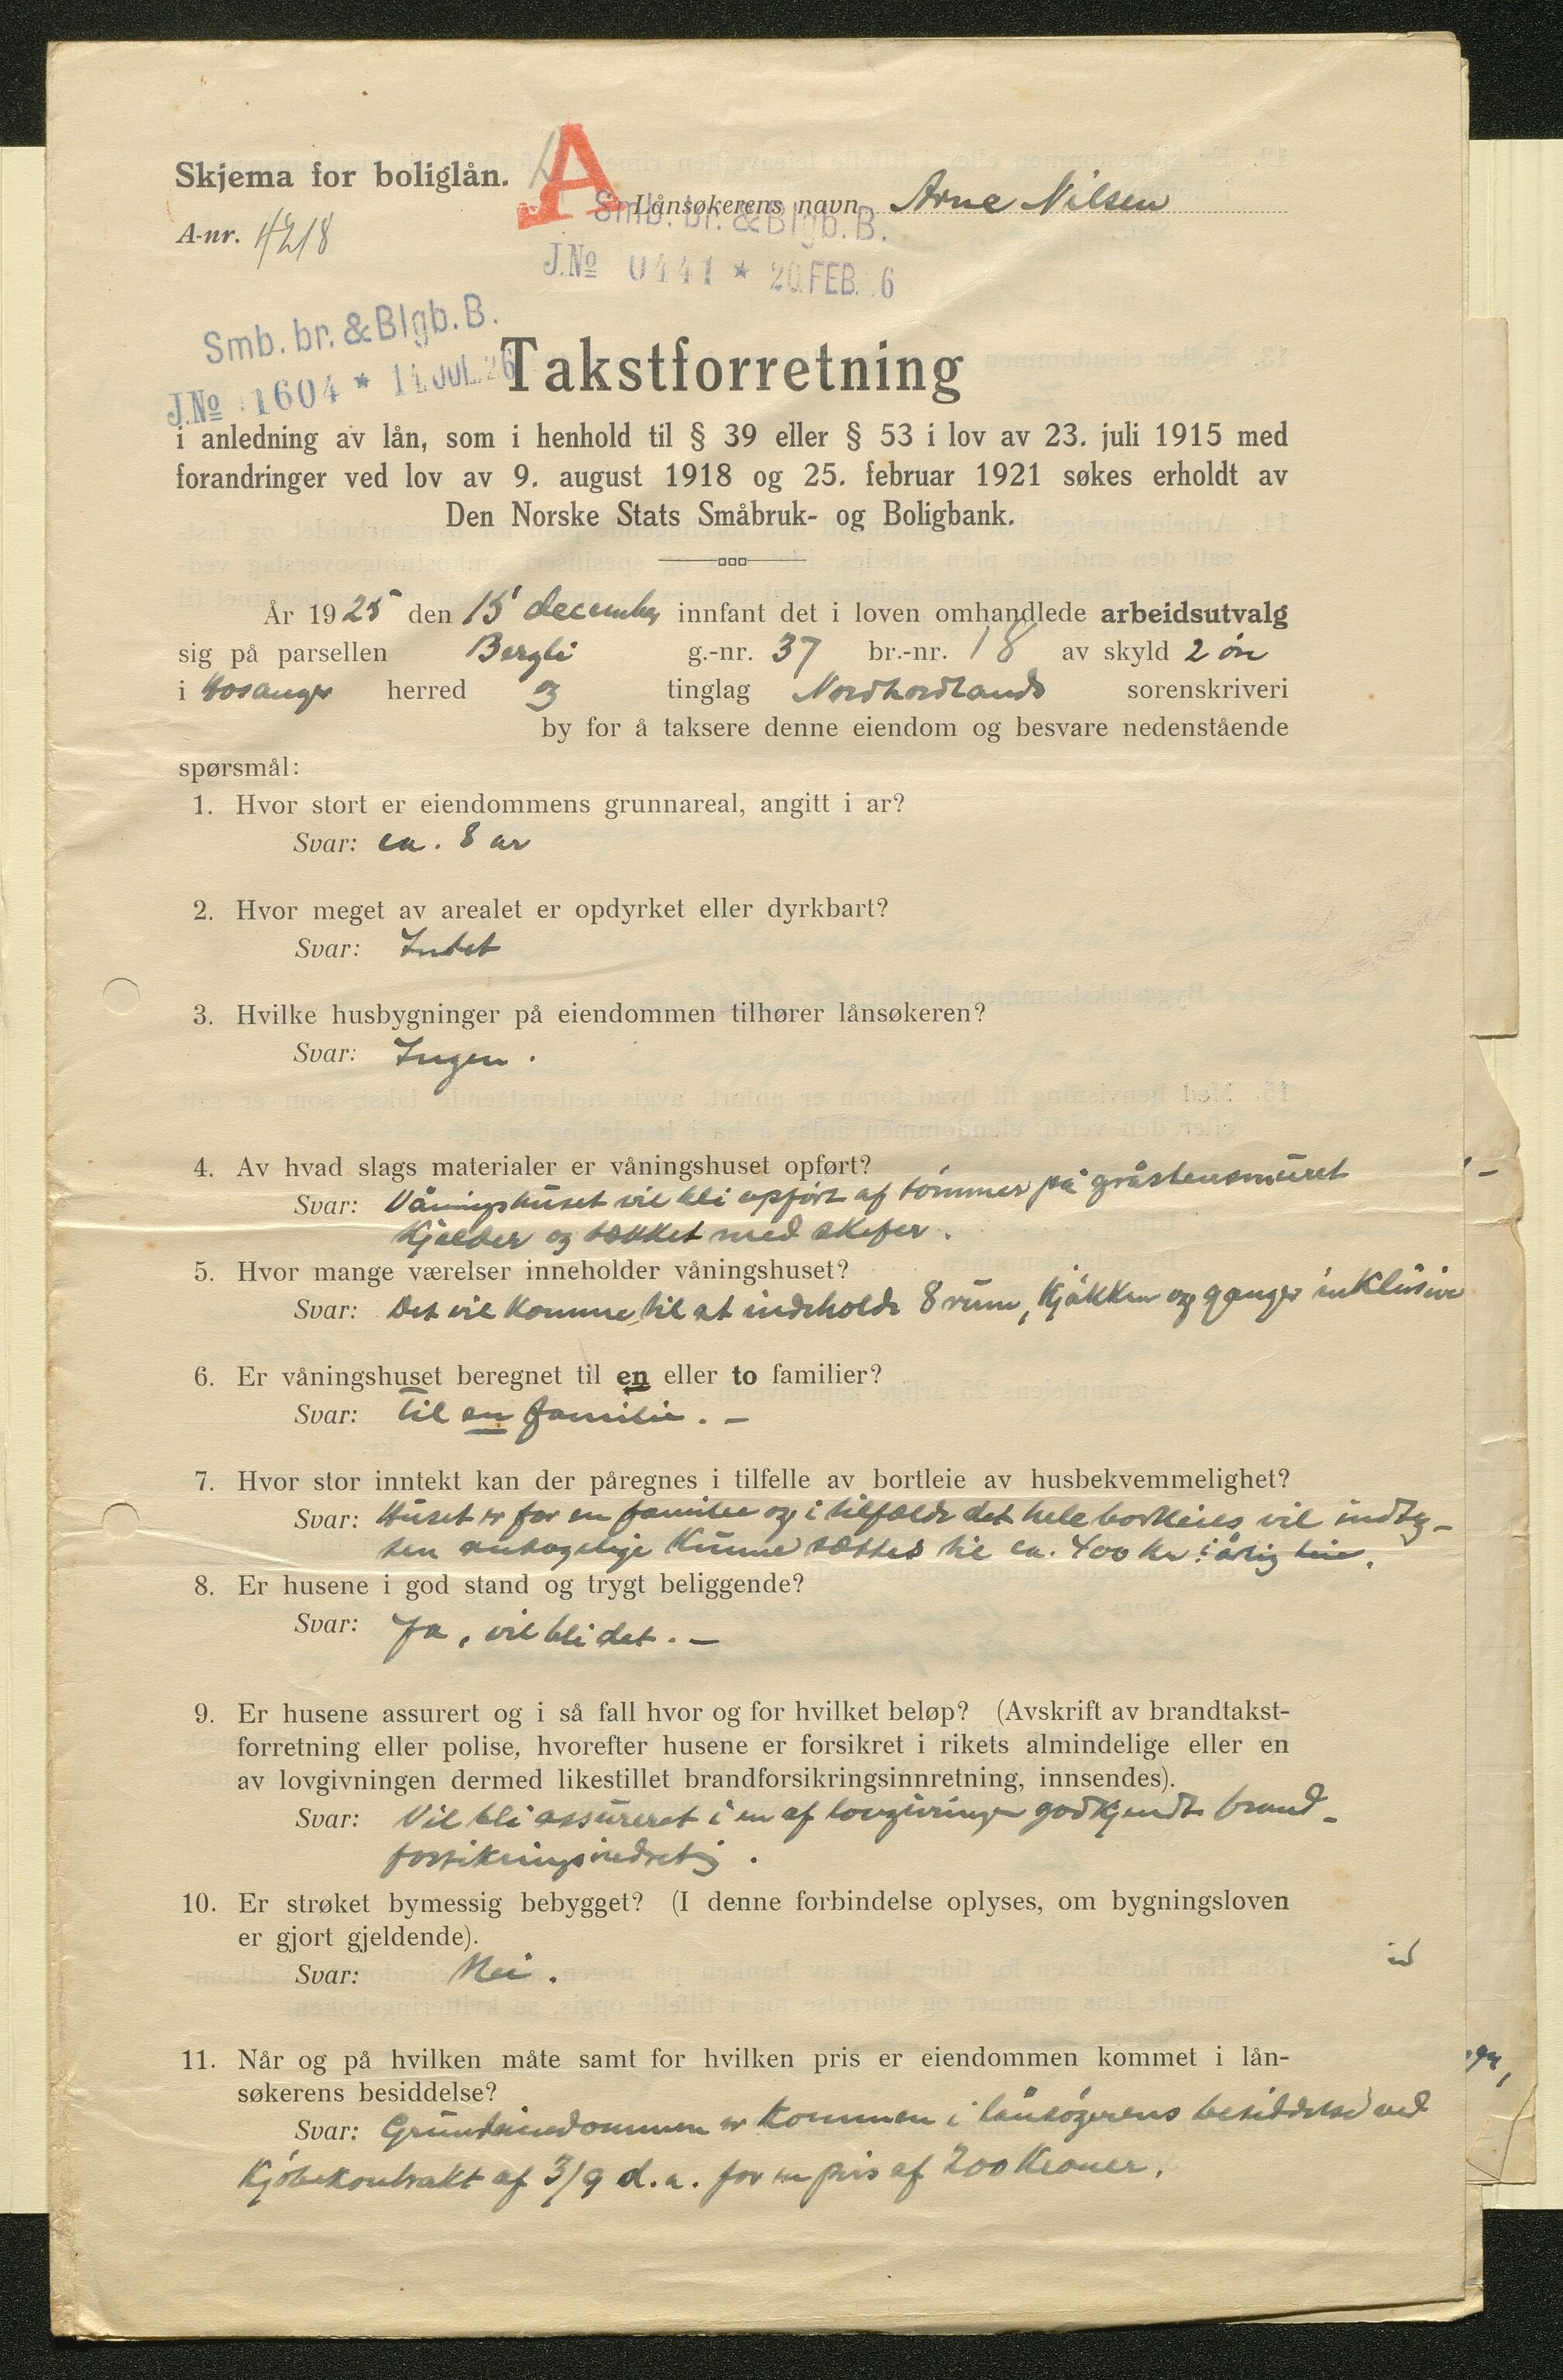 Skjema for boliglån.
A
Lånsøkerens navn Arne Nilsen
A-nr. 4218
Smb. br. & Blgb. B.
J.No 0441 * 20.FEB. 6
Smb. br. & Blgb. B.
J.No 1604 * 14.JUL.26
Takstforretning
i anledning av lån, som i henhold til § 39 eller § 53 i lov av 23. juli 1915 med
forandringer ved lov av 9. august 1918 og 25. februar 1921 søkes erholdt av
Den Norske Stats Småbruk- og Boligbank.
År 1925 den 15 december innfant det i loven omhandlede arbeidsutvalg
sig på parsellen Bergli g.-nr. 37 br.-nr. 18 av skyld 2 øre
i Hosanger herred og tinglag Nordhordlands sorenskriveri
by for å taksere denne eiendom og besvare nedenstående
spørsmål:
1. Hvor stort er eiendommens grunnareal, angitt i ar?
Svar: ca. 8 ar
2. Hvor meget av arealet er opdyrket eller dyrkbart?
Svar: Intet
3. Hvilke husbygninger på eiendommen tilhører lånsøkeren?
Svar: Ingen.
4. Av hvad slags materialer er våningshuset opført?
Svar: Våningshuset vil bli opført af tømmer på gråstensmuret
kjelder og tækket med skifer.
5. Hvor mange værelser inneholder våningshuset?
Svar: Det vil komme til at indeholde 8 rum, kjøkken og ganger inklusive
6. Er våningshuset beregnet til en eller to familier?
Svar: til en familie. –
7. Hvor stor inntekt kan der påregnes i tilfelle av bortleie av husbekvemmelighet?
Svar: Huset er for en familie og i tilfælde det hele bortleies vil indtæg-
ten antagelige kunne sættes til ca. 400 kr i årlig leie.
8. Er husene i god stand og trygt beliggende?
Svar: Ja, vil bli det. –
9. Er husene assurert og i så fall hvor og for hvilket beløp? (Avskrift av brandtakst-
forretning eller polise, hvorefter husene er forsikret i rikets almindelige eller en
av lovgivningen dermed likestillet brandforsikringsinnretning, innsendes).
Svar: Vil bli assureret i en af lovgivningen godkjendt brand-
forsikringsindretig.
10. Er strøket bymessig bebygget? (I denne forbindelse oplyses, om bygningsloven
er gjort gjeldende).
Svar: Nei.
11. Når og på hvilken måte samt for hvilken pris er eiendommen kommet i lån-
søkerens besiddelse?
Svar: Grundeiendommen er kommen i lånsøgerens besiddelse ved
kjøbekontrakt af 3/9 d.a. for en pris af 200 kroner.